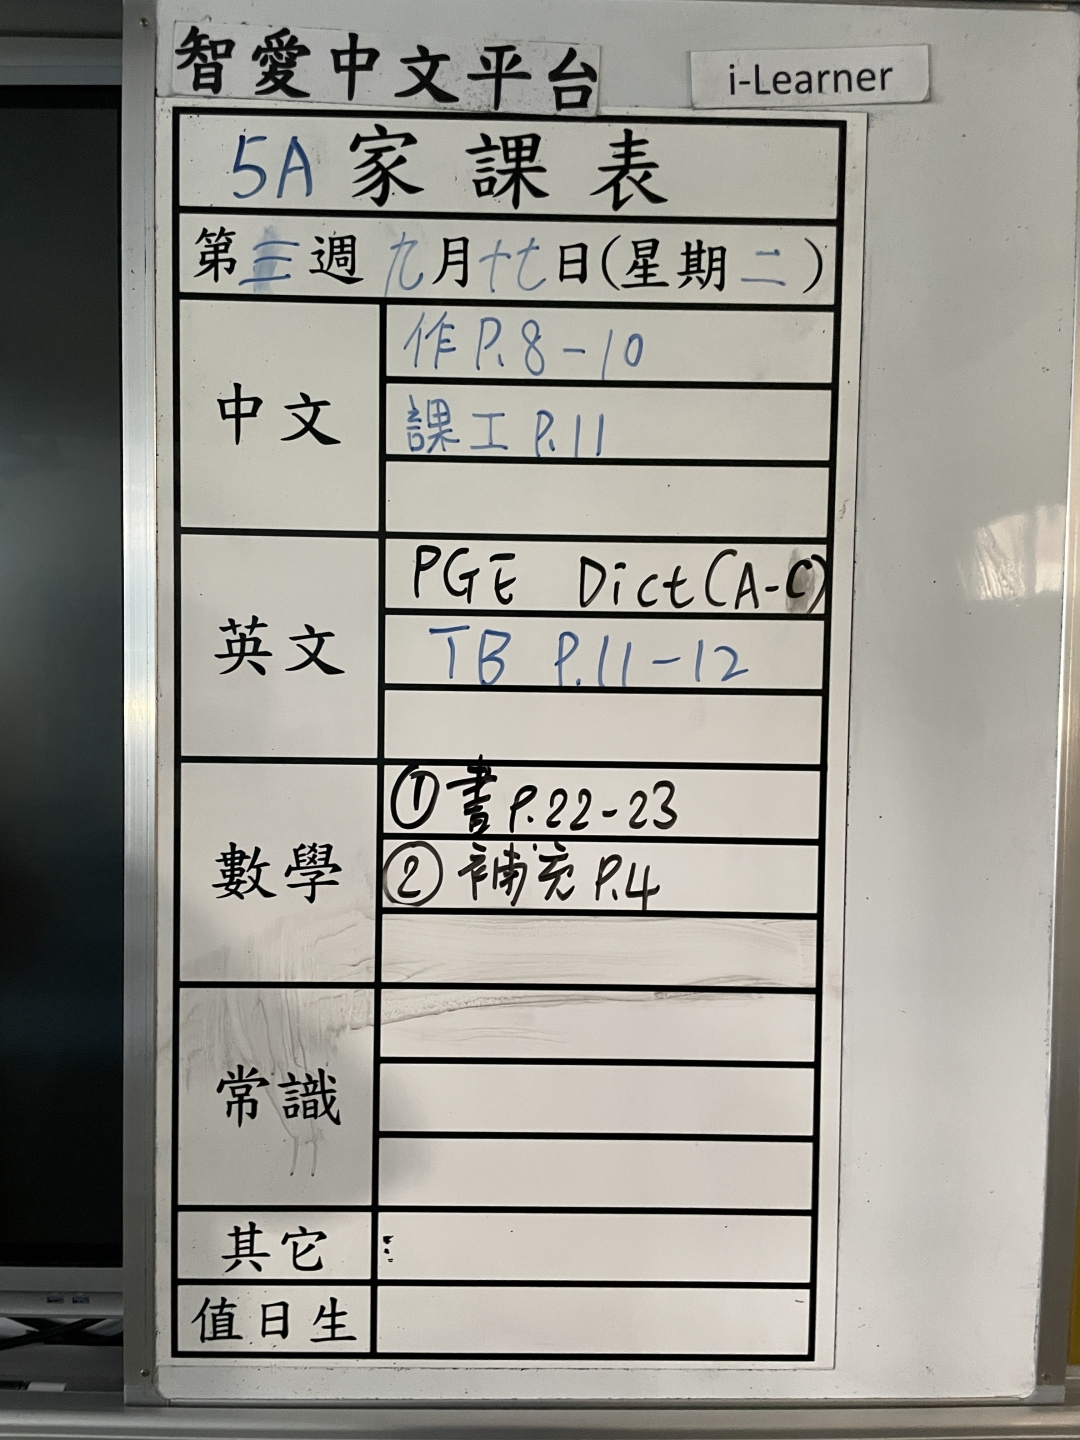 智愛中文平台
i-Learner
5A 家課表
第三週 九月十七日(星期二)
中文
作 P.8-10
課工 P.11
英文
PGE Dict (A-C)
TB P.11-12
數學
① 書 P.22-23
② 補充 P.4
常識
其它
值日生